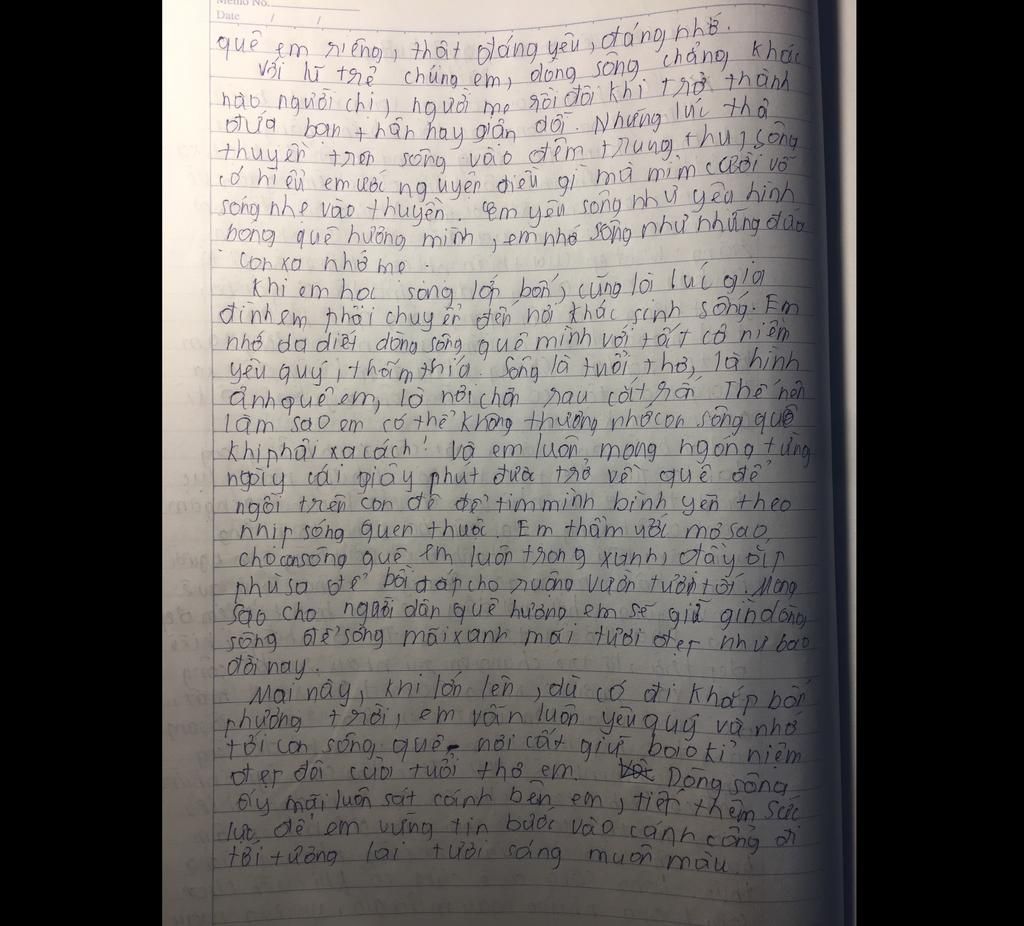 Memo No.
Date / /
quê em riêng, thật đáng yêu, đáng nhớ.
Với lũ trẻ chúng em, dòng sông chẳng khác
nào người chị, người mẹ rồi đôi khi trở thành
đứa bạn thân hay giận dỗi. Những lúc thả
thuyền trên sông vào đêm trung thu, sông
có hiểu em ước nguyện điều gì mà mỉm cười vỗ
sóng nhẹ vào thuyền. Em yêu sông như yêu hình
bóng quê hương mình, em nhớ sông như những đứa
con xa nhớ mẹ.
Khi em học sang lớp bốn, cũng là lúc gia
đình em phải chuyển đến nơi khác sinh sống. Em
nhớ da diết dòng sông quê mình với tất cả niềm
yêu quý, thấm thía. Sông là tuổi thơ, là hình
ảnh quê em, là nơi chôn rau cắt rốn. Thế nên
làm sao em có thể không thương nhớ con sông quê
khi phải xa cách! Và em luôn mong ngóng từng
ngày cái giây phút được trở về quê để
ngồi trên con đê để tim mình bình yên theo
nhịp sóng quen thuộc. Em thầm ước mơ sao
cho con sông quê em luôn trong xanh, đầy ắp
phù sa để bồi đắp cho ruộng vườn tươi tốt. Mong
sao cho người dân quê hương em sẽ giữ gìn dòng
sông để sông mãi xanh mãi tươi đẹp như bao
đời nay.
Mai này, khi lớn lên, dù có đi khắp bốn
phương trời, em vẫn luôn yêu quý và nhớ
tới con sông quê - nơi cất giữ bao kỉ niệm
đẹp đời của tuổi thơ em. Dòng sông
ấy mãi luôn sát cánh bên em, tiếp thêm sức
lực để em vững tin bước vào cánh cổng đi
tới tương lai tươi sáng muôn màu.